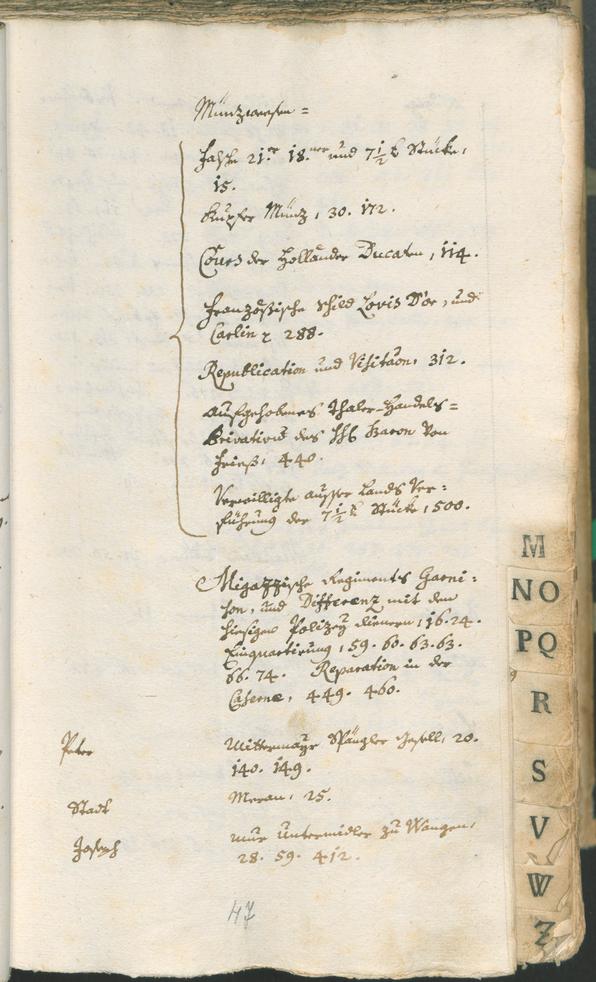 Münzwesen =
falsche 21.er 18.ner und 7½ k Stücke,
15.
Kupfer Münz, 30. 172.
Cours der Holländer Ducaten, 114.
Französische Schild Lovis D'or, und
Carlin 288.
Republication und Visitãon, 312.
Aufgehobenes Thaler-Handels=
Privativum des Baron von
Frieß, 440.
Verwilligte ausser Lands Ver=
führung der 7½ k Stücke, 500.
Migazzische Regiments Garni=
son, und Differenz mit den
hiesigen Polizey dienern, 16. 24.
Einquartirung, 59. 60. 63. 63.
66. 74. Reparation in der
Caserne, 449. 460.
Peter Mittermayr Spängler Gesell, 20.
140. 149.
Stadt Meran, 25.
Joseph Untermidler zu Wangen,
28. 59. 412.
47
M
NO
PQ
R
S
V
W
Z